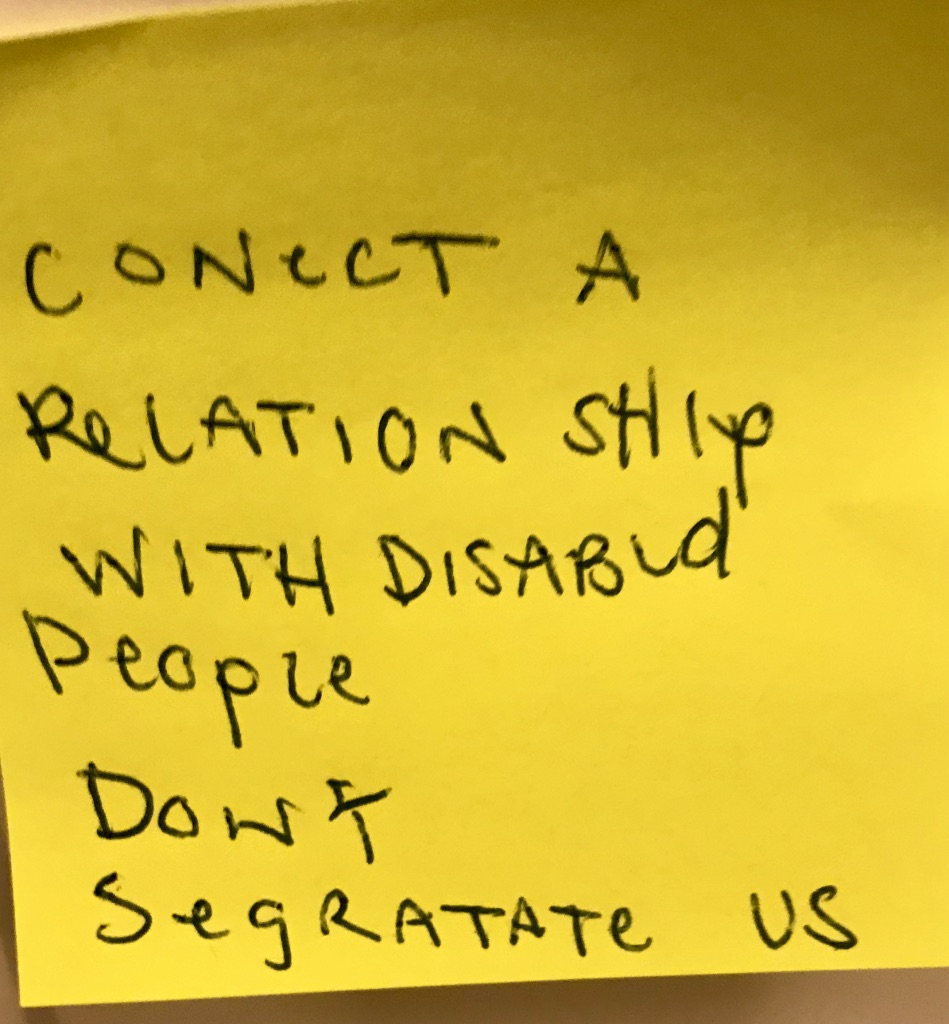 CONeCT A
ReLATION SHIp
WITH DISABLd
PeopLe
DON'T
SegRATATe US